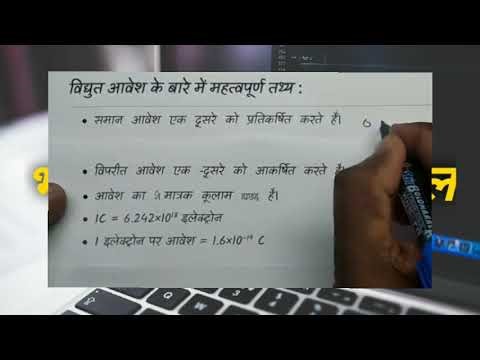 विद्युत आवेश के बारे में महत्वपूर्ण तथ्य :
• समान आवेश एक दूसरे को प्रतिकर्षित करते हैं।
• विपरीत आवेश एक दूसरे को आकर्षित करते है।
• आवेश का मात्रक कूलाम है।
• 1C = 6.242×10¹⁸ इलेक्ट्रोन
• 1 इलेक्ट्रोन पर आवेश = 1.6×10⁻¹⁹ C